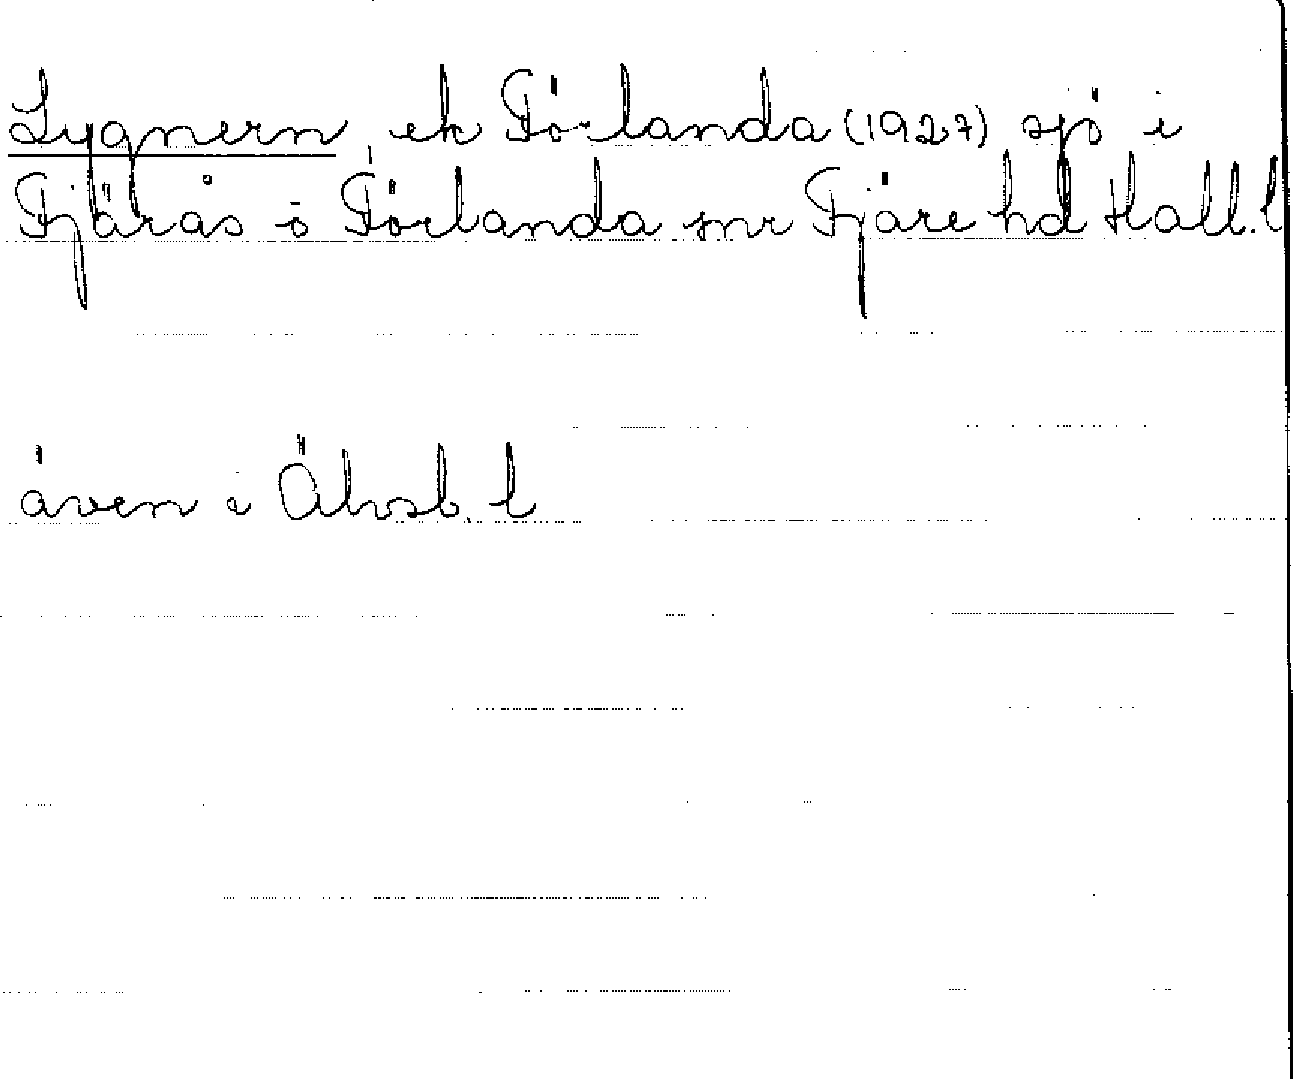 Lygnern, ek Förlanda (1927) sjö i
Fjärås o Förlanda snr Fjäre hd Hall. l
även i Älvsb. l